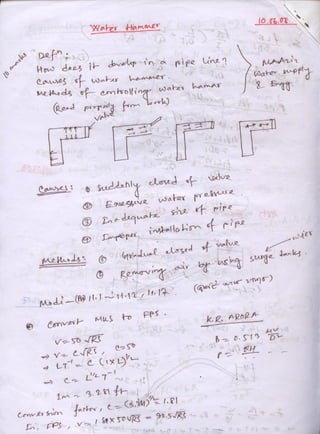 Water Hammer
10.06.08
10 marks
Defn:
How does it develop in a pipe line?
Causes of water hammer
Methods of controlling water hamar
(Read properly from book)
M.A. Aziz
Water supply
& Engg.
valve
Causes: ① Suddenly closed of valve
② Excessive water pressure.
③ Inadequate size of pipe
④ Improper installation of pipe
Methods: ① Gradual closed of valve
② Removing air by using surge tanks.
Modi - 11.1 - 11.12, 11.17
Convert MKS to FPS.
K.R. ARORA
V = 50 √RS
⇒ V = C√RS, C=50
⇒ LT⁻¹ = C (1×L)^½
⇒ C = L^½ T⁻¹
1m = 3.281 ft
Conversion factor, C = (3.281)^½ = 1.81
In FPS, V = 1.81×50√RS = 90.5√RS